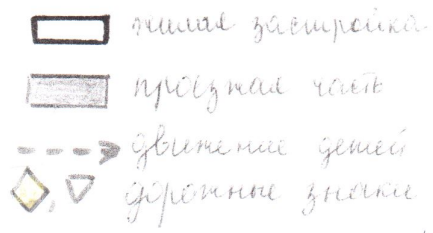 жилая застройка
проезжая часть
движение детей
дорожные знаки